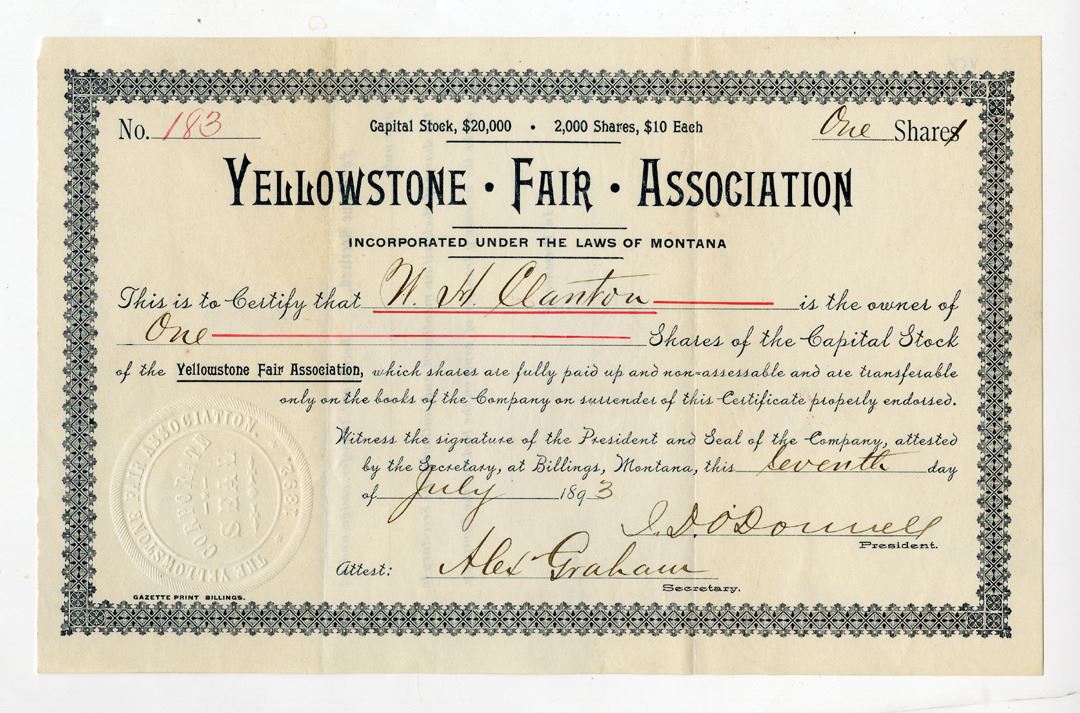 No. 183
Capital Stock, $20,000 • 2,000 Shares, $10 Each
One Shares
YELLOWSTONE • FAIR • ASSOCIATION
INCORPORATED UNDER THE LAWS OF MONTANA
This is to Certify that W. H. Clanton is the owner of
One Shares of the Capital Stock
of the Yellowstone Fair Association, which shares are fully paid up and non=assessable and are transferable
only on the books of the Company on surrender of this Certificate properly endorsed.
Witness the signature of the President and Seal of the Company, attested
by the Secretary, at Billings, Montana, this Seventh day
of July 1893
I. D. O'Donnell
President.
Attest: Alex Graham
Secretary.
THE YELLOWSTONE FAIR ASSOCIATION.
* 1892 *
CORPORATE
SEAL
GAZETTE PRINT BILLINGS.